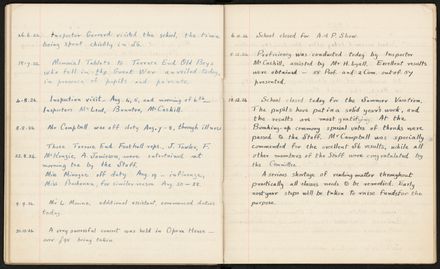 26.6.24. Inspector Gerard visited the school, the time
being spent chiefly in S6.
Memorial Tablets to Terrace End Old Boys
who fell in the Great War unveiled today,
in presence of pupils and parents.
Inspection visit – Aug. 4, 5, and morning of 6th –
Inspectors McLeod, Braunton, McCaskill.
Mr Campbell was off duty Aug. 7 – 8, through illness
Three Terrace End Football reps., J. Taylor, F.
McKenzie, A. Jamieson, were entertained at
morning tea by the Staff.
Miss off duty Aug. 19 – influenza,
Miss for similar reason Aug 20 – 22.
Mr L. Moore, additional assistant, commenced duties
today
A very successful concert was held in Opera House –
over being taken
School closed for A & P. Show.
Proficiency was conducted today by Inspector
McCaskill, assisted by Mr H. Lyall. Excellent results
were obtained – 55 Prof. and 2 Com. out of 57
presented.
School closed today for the Summer Vacation.
The pupils have put in a solid year's work, and
the results are most gratifying. At the
Breaking-up ceremony special votes of thanks were
passed to the Staff. Mr Campbell was specially
commended for the excellent S6 results, while all
other members of the Staff were congratulated by
the Committee.
A serious shortage of reading matter throughout
practically all classes needs to be remedied. Early
next year steps will be taken to raise funds for the
purpose.